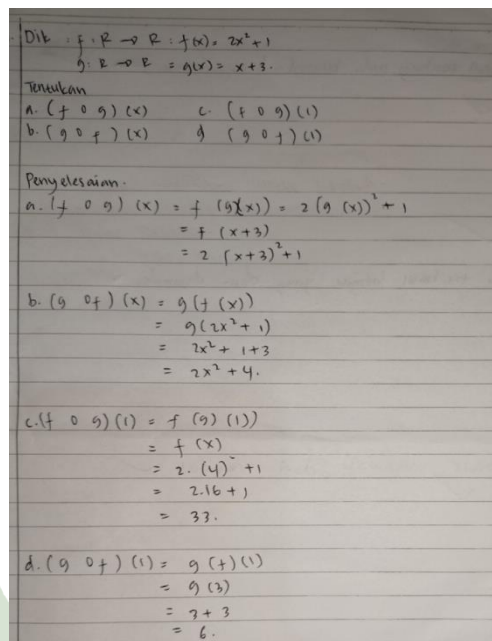 Dik : f : R → R : f(x) = 2x² + 1
g : R → R = g(x) = x + 3.
Tentukan
a. (f o g) (x) c. (f o g) (1)
b. (g o f) (x) d (g o f) (1)
Penyelesaian.
a. (f o g) (x) = f (g(x)) = 2 (g (x))² + 1
= f (x+3)
= 2 (x+3)² + 1
b. (g o f) (x) = g (f (x))
= g (2x² + 1)
= 2x² + 1 + 3
= 2x² + 4.
c. (f o g) (1) = f (g) (1))
= f (x)
= 2. (4)² + 1
= 2.16 + 1
= 33.
d. (g o f) (1) = g (f) (1)
= g (3)
= 3 + 3
= 6.